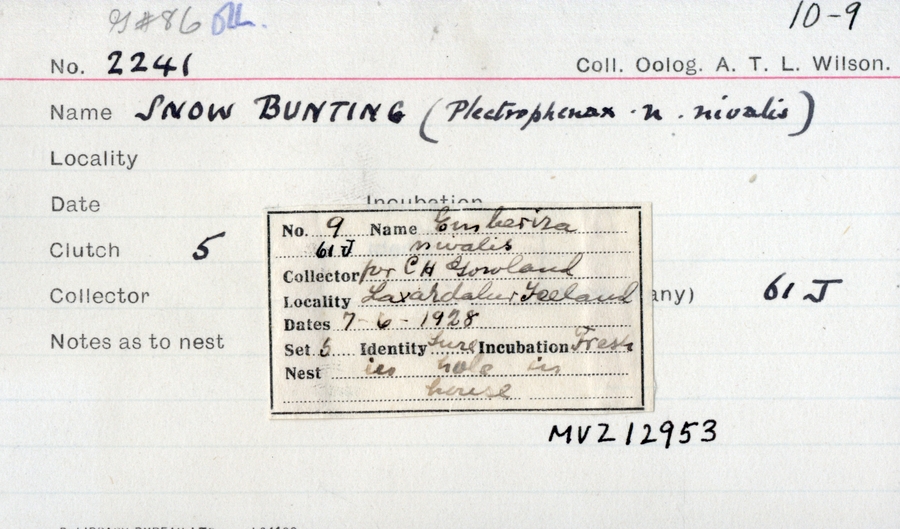 G#86 10-9
No. 2241 Coll. Oolog. A. T. L. Wilson.
Name SNOW BUNTING (Plectrophenax . n . nivalis)
Locality
Date Incubation
Clutch 5
Collector any) 61 J
Notes as to nest
No. 9 Name Emberiza
61 J nivalis
Collector per C H Gowland
Locality Laxardalur Iceland
Dates 7-6-1928
Set 5 Identity Sure Incubation Fresh
Nest in hole in
house
MVZ 12953